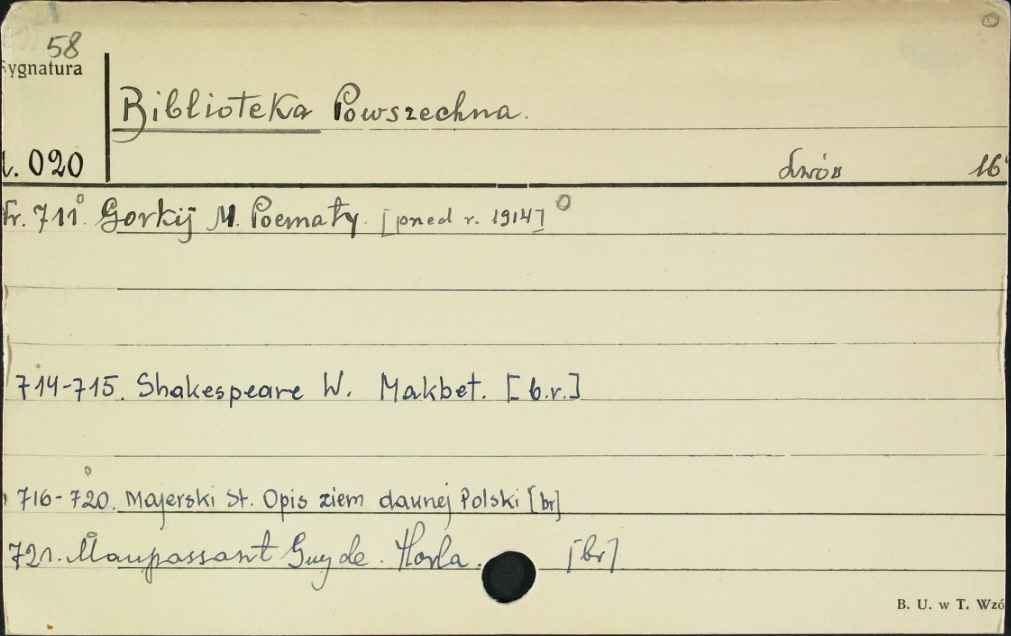 58
ygnatura
Biblioteka Powszechna.
020
Lwów 16°
Nr. 711. Gorkij M. Poematy. [przed r. 1914]
714-715. Shakespeare W. Makbet. [b.r.]
716-720. Majerski St. Opis ziem dawnej Polski [br]
721. Maupassant Guy de. Horla. [br]
B. U. w T. Wzó